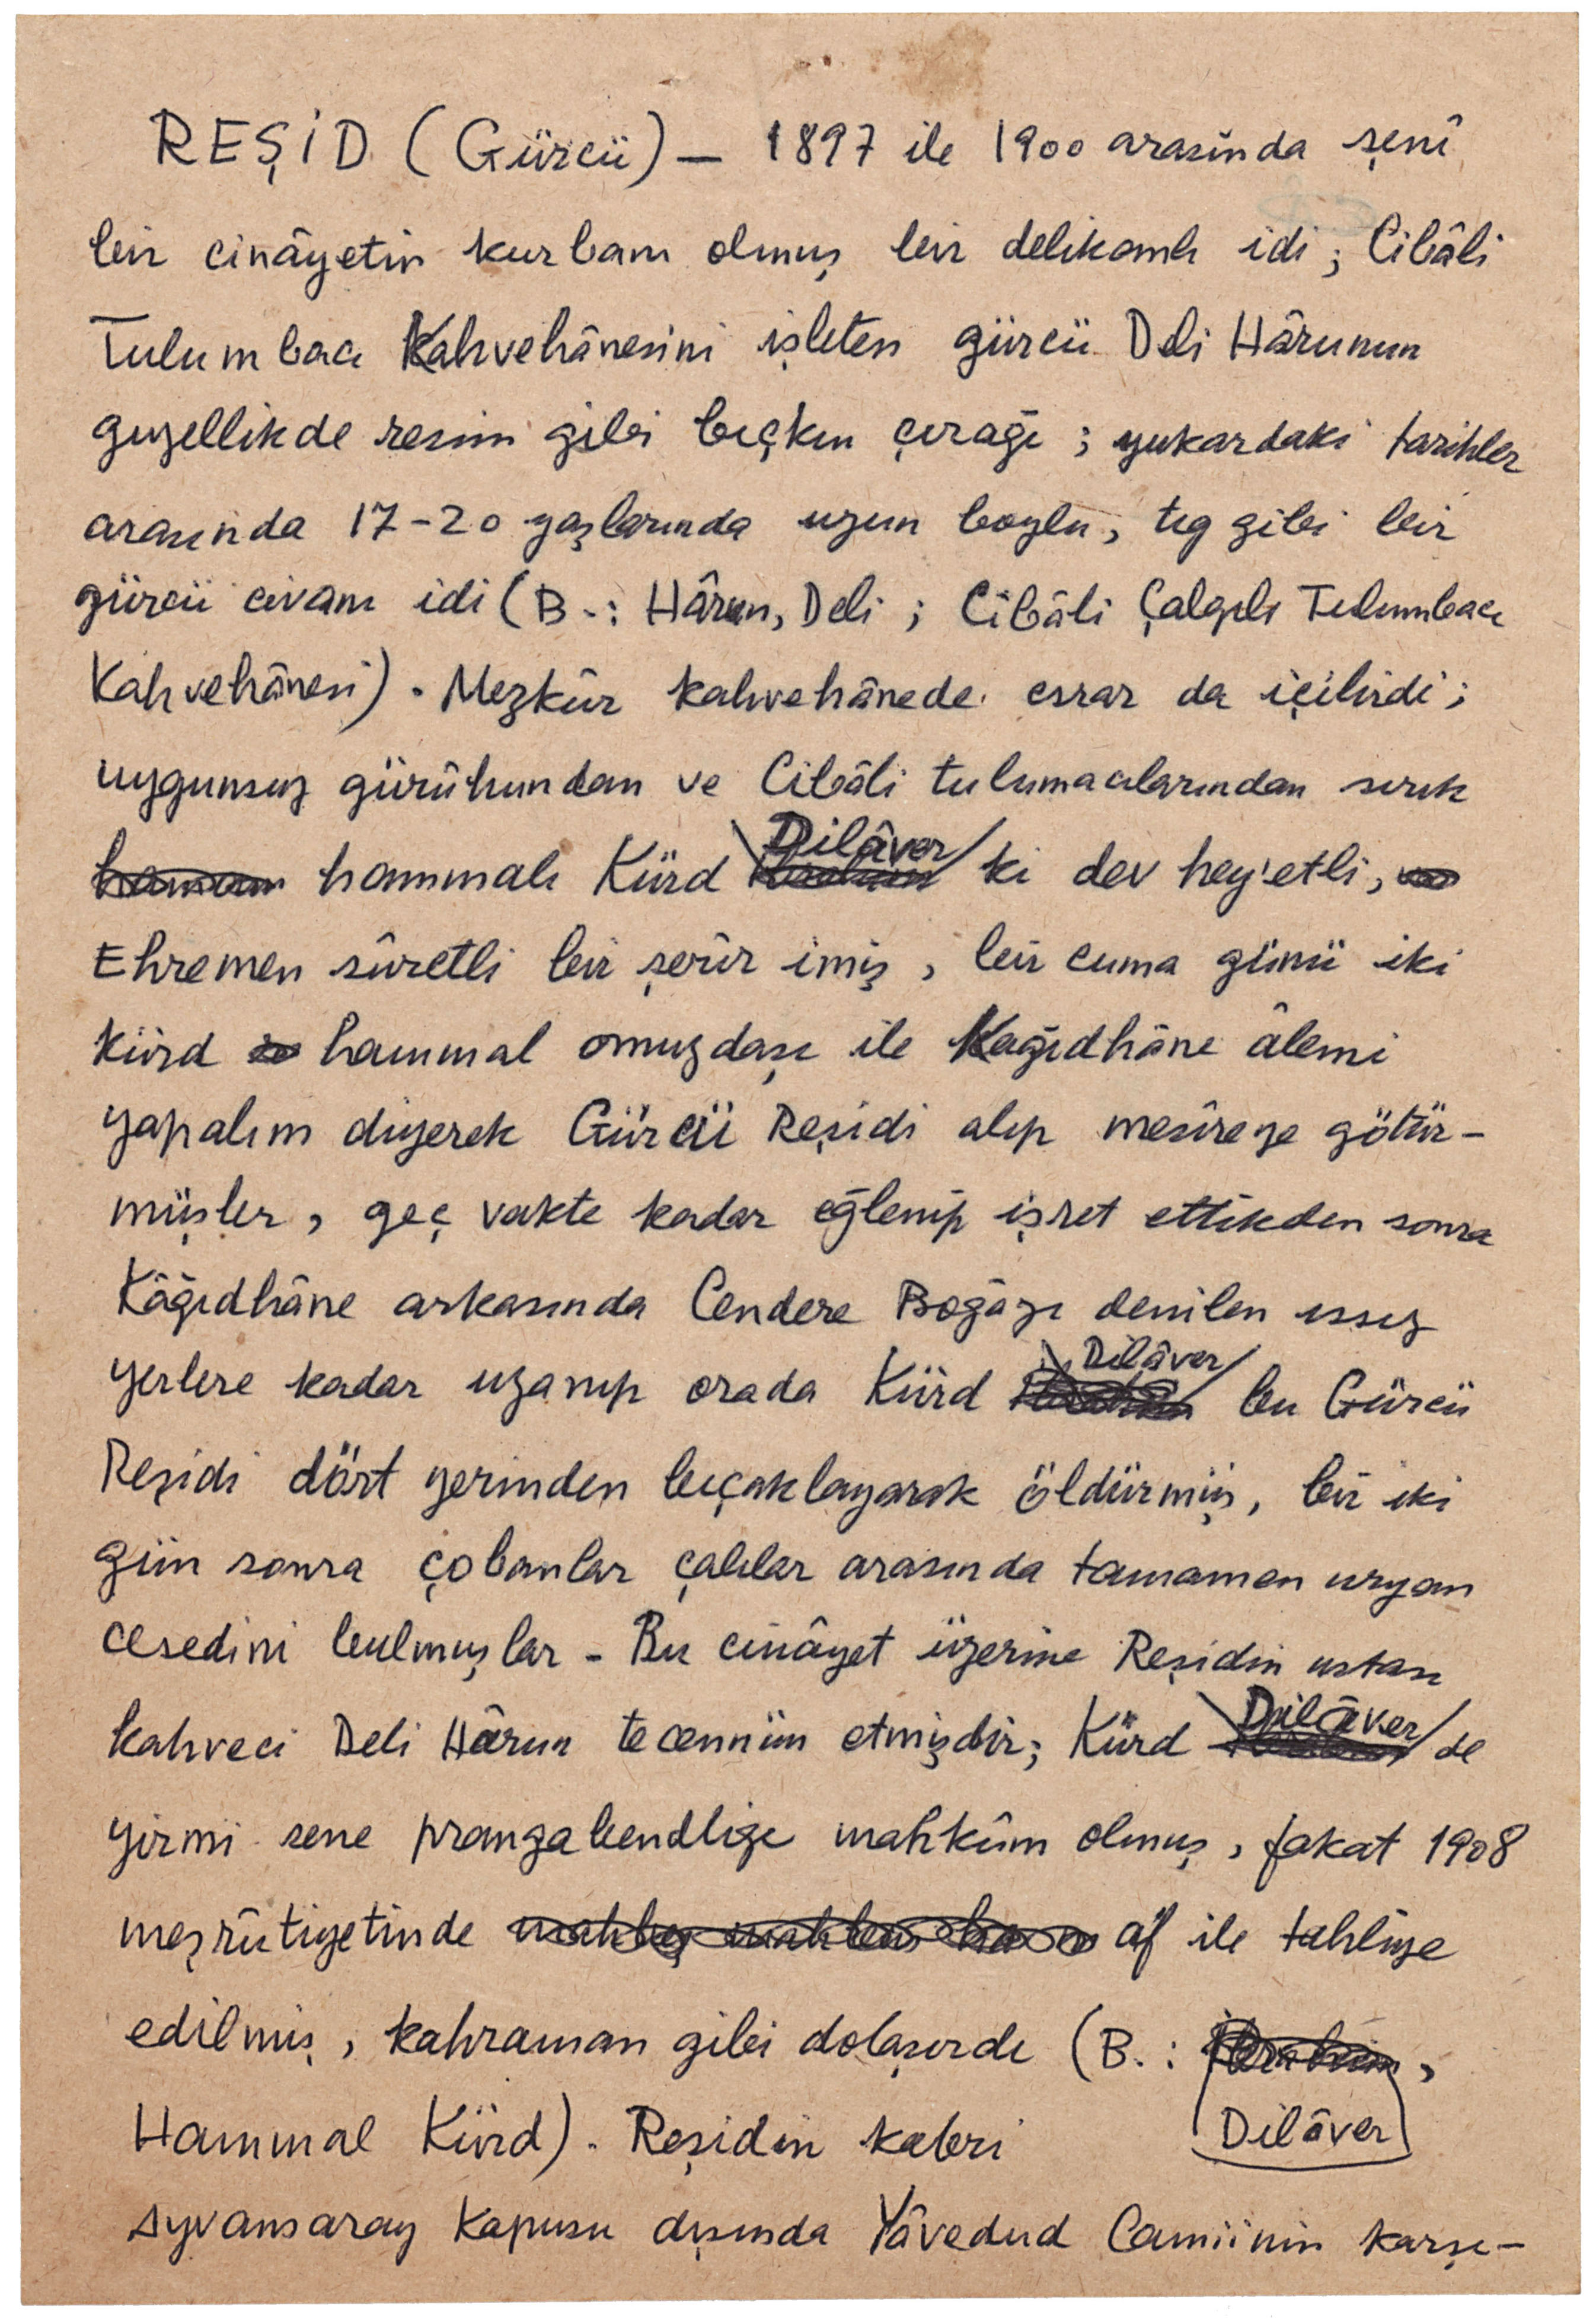 REŞİD (Gürcü) — 1897 ile 1900 arasında şenî
bir cinâyetin kurbanı olmuş bir delikanlı idi; Cibâli
Tulumbacı Kahvehânesini işleten gürcü Deli Hârunun
guzellikde resim gibi bıçkın çırağı; yukardaki tarihler
arasında 17-20 yaşlarında uzun boylu, tığ gibi bir
gürcü civanı idi (B.: Hârun, Deli; Cibâli Çalgılı Tulumbacı
Kahvehânesi). Mezkûr kahvehânede esrar da içilirdi;
uygunsuz gürûhundan ve Cibâli tulumacılarından sırık
hammalı Kürd Dilâver ki dev hey'etli,
Ehremen sûretli bir şerîr imiş, bir cuma günü iki
kürd hammal omuzdaşı ile Kağıdhâne âlemi
yapalım diyerek Gürcü Reşidi alıp mesîreye götür-
müşler, geç vakte kadar eğlenip işret ettikden sonra
Kâğıdhâne arkasında Cendere Boğazı denilen ıssız
yerlere kadar uzanıp orada Kürd Dilâver bu Gürcü
Reşidi dört yerinden bıçaklayarak öldürmüş, bir iki
gün sonra çobanlar çalılar arasında tamamen uryan
cesedini bulmuşlar - Bu cinâyet üzerine Reşidin ustası
kahveci Deli Hârun tecennün etmişdir; Kürd Dilâver de
yirmi sene prangabendliğe mahkûm olmuş, fakat 1908
meşrûtiyetinde af ile tahliye
edilmiş, kahraman gibi dolaşırdı (B.: İbrahim,
Hammal Kürd). Reşidin kabri Dilâver
Ayvansaray Kapusu dışında Yâvedud Camiinin karşı-